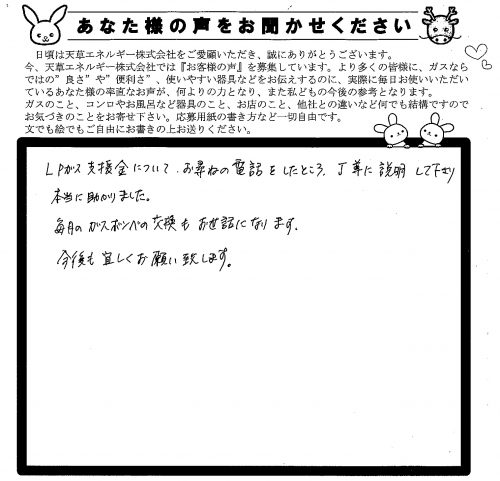 あなた様の声をお聞かせください
日頃は天草エネルギー株式会社をご愛顧いただき、誠にありがとうございます。
今、天草エネルギー株式会社では『お客様の声』を募集しています。より多くの皆様に、ガスなら
ではの”良さ”や”便利さ”、使いやすい器具などをお伝えするのに、実際に毎日お使いいただい
ているあなた様の率直なお声が、何よりの力となり、また私どもの今後の参考となります。
ガスのこと、コンロやお風呂など器具のこと、お店のこと、他社との違いなど何でも結構ですので
お気づきのことをお寄せ下さい。応募用紙の書き方など一切自由です。
文でも絵でもご自由にお書きの上お送りください。
LPガス支援金について、お尋ねの電話をしたところ、丁寧に説明して下さり
本当に助かりました。
毎月のガスボンベの交換もお世話になります。
今後も宜しくお願い致します。